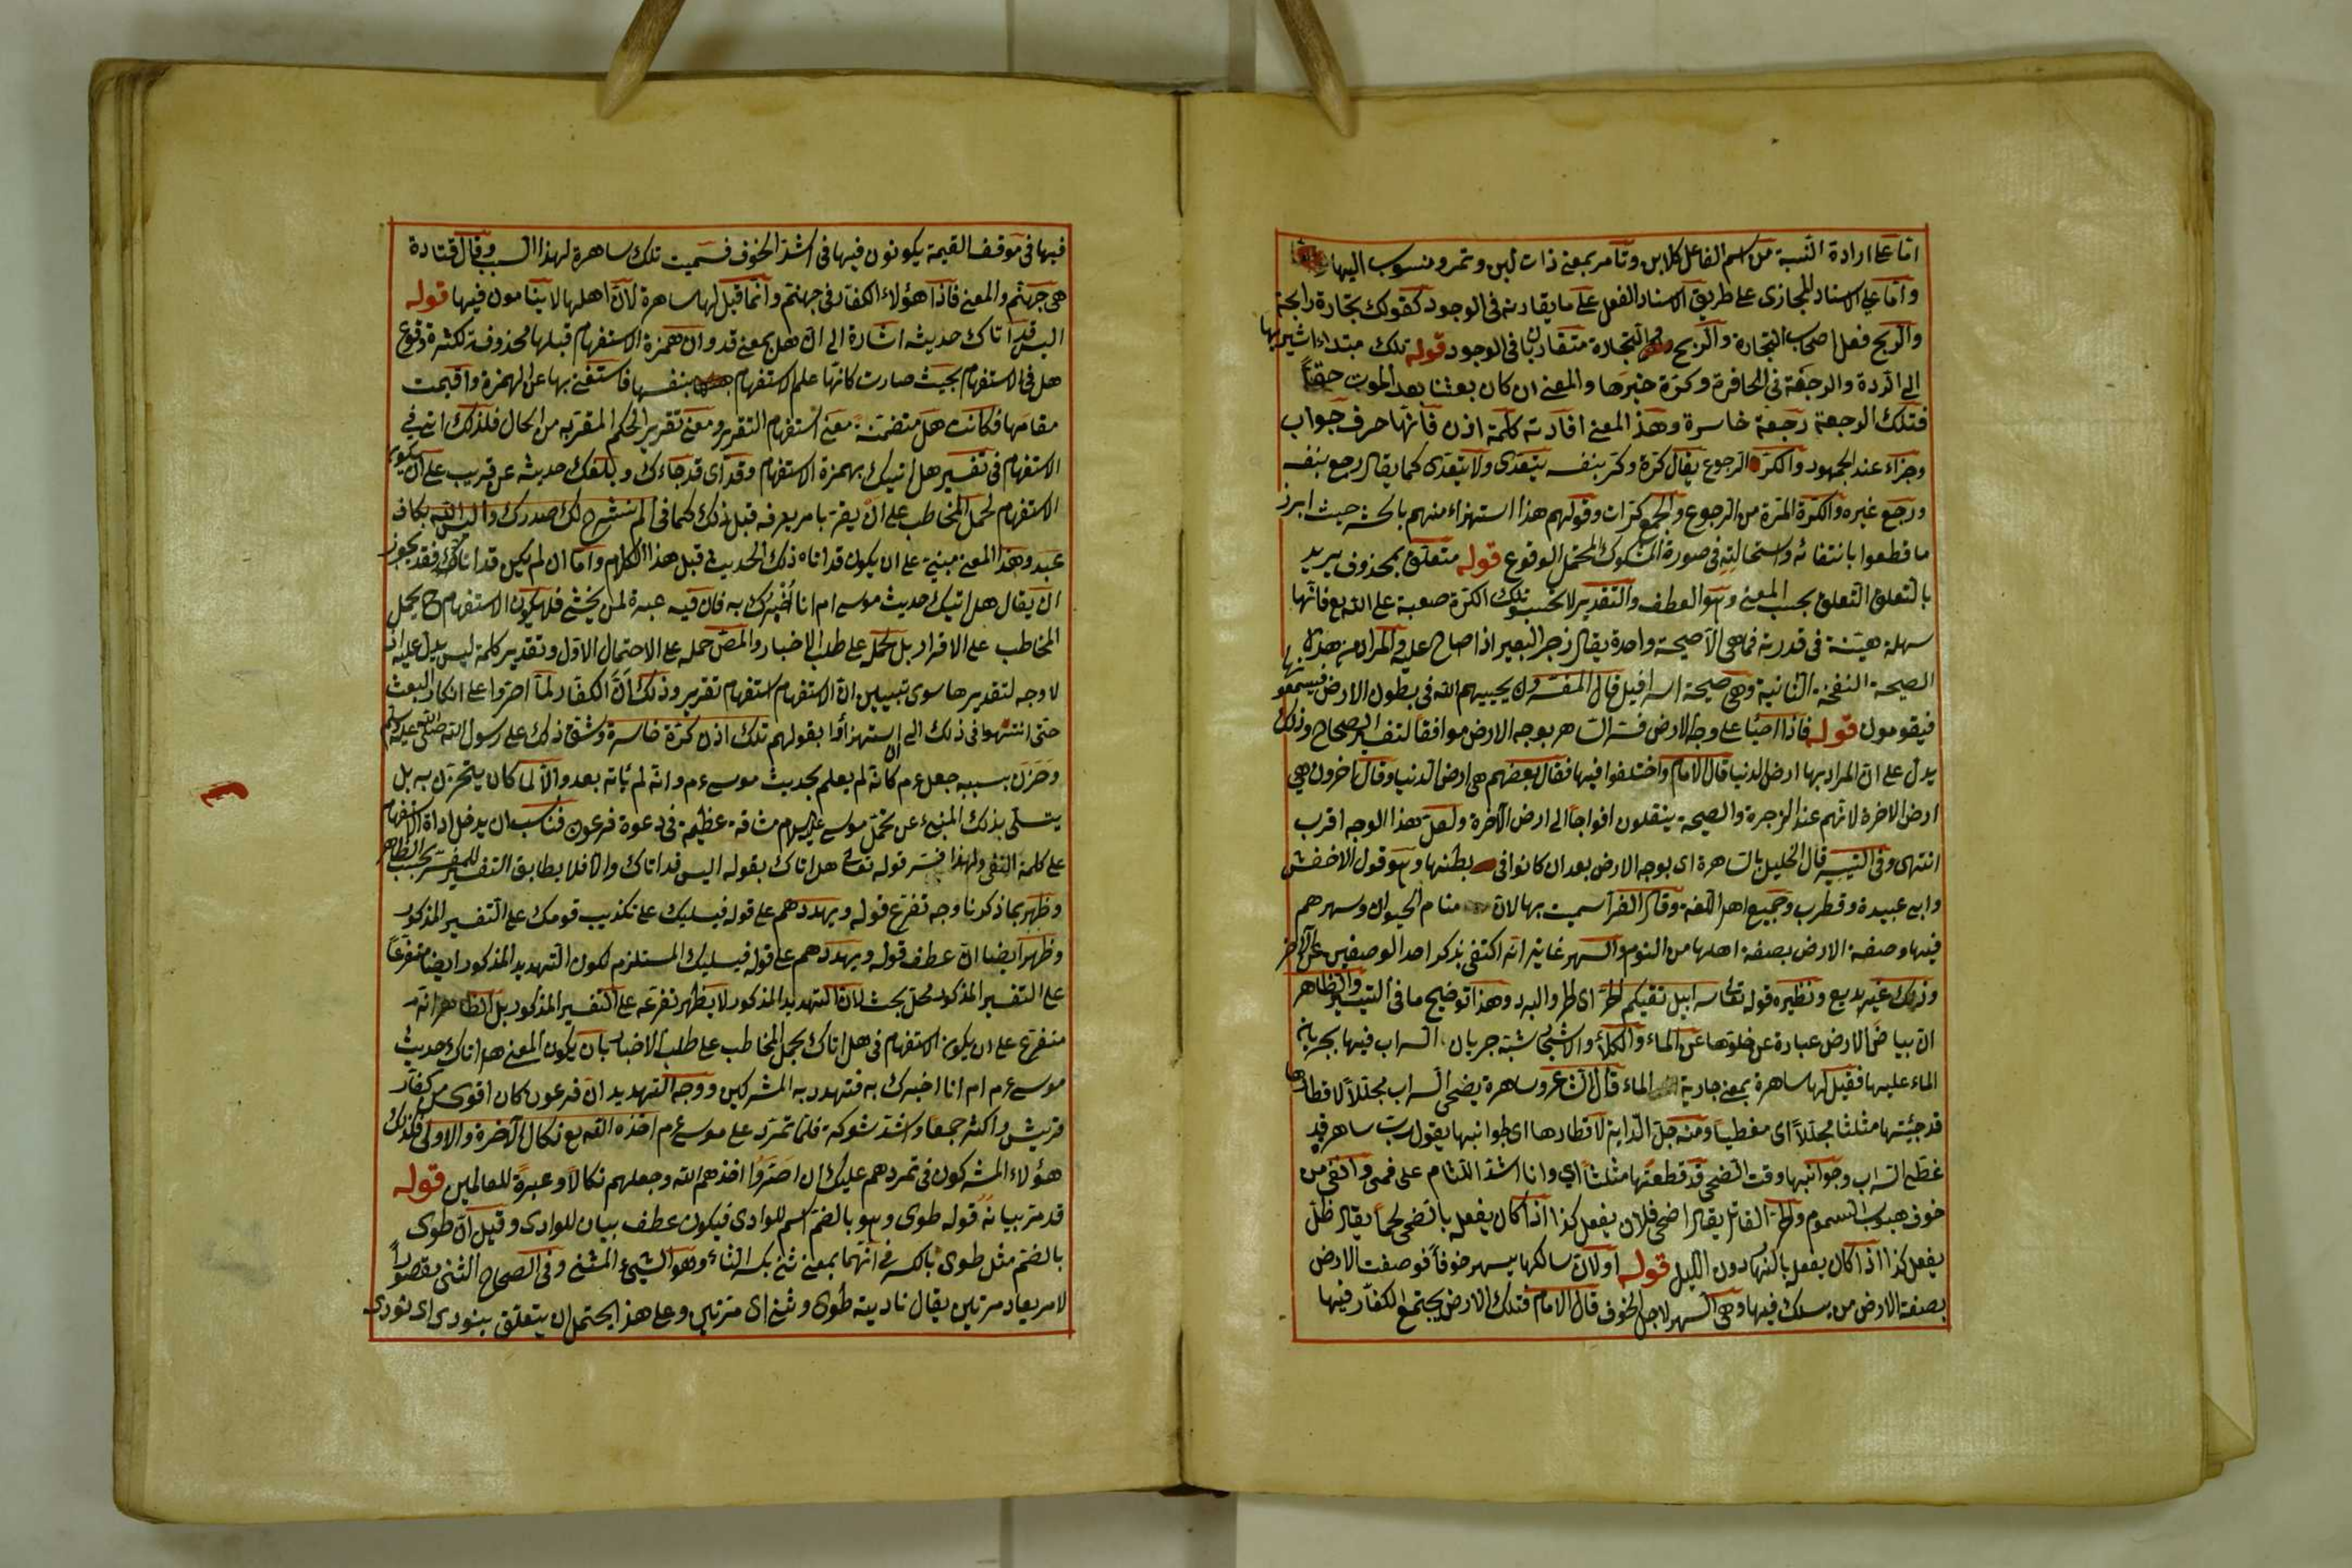 اما على ارادة النسبة من اسم الفاعل كلابن وتامر بمعنى ذات لبن وتمر ومنسوب اليها
واما على الاسناد المجازى على طريق الاسناد الفعل على ما يقارنه فى الوجود كقولك تجارة رابحة
والربح فعل اصحاب التجارة والربح والتجارة متقاربان فى الوجود قوله تلك مبتداء اشير بها
الى الردة والرجعة فى الحافرة وكرة خبرها والمعنى ان كان بعثنا بعد الموت حقا
فتلك الرجعة رجعة خاسرة وهذ المعنى افادته كلمة اذن فانها حرف جواب
وجزاء عند الجمهور والكر الرجوع يقال كره وكر بنفسه يتعدى ولا يتعدى كما يقال رجع بنفسه
ورجع غيره والكرة المرة من الرجوع والجمع كرات وقولهم هذا استهزاء منهم بالحشر حيث ابرز
ما قطعوا بانتفائه واستحالته فى صورة المشكوك المحتمل الوقوع قوله متعلق بمحذوف يريد
بالتعلق التعلق بحسب المعنى وهو العطف والتقدير لا تحسبوا تلك الكرة صعبة على الله تع فانها
سهلة هينة فى قدرته فما هى الا صيحة واحدة يقال زجر البعير اذا صاح عليه والمراد من هذه
الصيحة النفخة الثانية وهى صيحة اسرافيل قال المفسرون يحييهم الله فى بطون الارض فيسمعونها
فيقومون قوله فاذا احيا على وجه الارض فسر الساهرة بوجه الارض موافقا لتفسير الصحاح وذلك
يدل على ان المراد بها ارض الدنيا قال الامام واختلفوا فيها فقال بعضهم هى ارض الدنيا وقال آخرون هى
ارض الاخرة لانهم عند الزجرة والصيحة ينقلون افواجا الى ارض الآخرة ولعل هذا الوجه اقرب
انتهى وفى التيسير قال الخليل بالساهرة اى بوجه الارض بعد ان كانوا فى بطنها وهو قول الاخفش
وابى عبيدة وقطرب وجميع اهل اللغة وقال الفرا سميت بها لان منام الحيوان وسهرهم
فيها وصفة الارض بصفة اهلها من النوم والسهر غايته انه اكتفى بذكر احد الوصفين عن الآخر
وذلك غير بديع ونظيره قوله تعالى سرابيل تقيكم الحر اى الحر والبرد وهذا توضيح ما فى التيسير والظاهر
ان بياض الارض عبارة عن خلوها عن الماء والكلاء والاشجار شبه جريان السراب فيها بجريان
الماء عليها فقيل لها ساهرة بمعنى جارية الماء قال الشاعر وساهرة يضحى السراب مجللا لاقطارها
قد جئتها مثلثا مجللا اى مغطيا ومنه جل الدابة لاقطارها اى جوانبها يقول رب ساهر قد
غطى السراب وجوانبها وقت الضحى قد قطعتها مثلثا اى وانا اشد اللثام على فمى وانفى من
خوف هبوب السموم والحر القاتل يقال اضحى فلان يفعل كذا اذا كان يفعل بالضحى كما يقال ظل
يفعل كذا اذا كان يفعل بالنهار دون الليل قوله اولان سالكها يسهر خوفا فوصفت الارض
بصفة الارض من يسلك فيها وهى السهر لاجل الخوف قال الامام فتلك الارض يجتمع الكفار فيها
فيها فى موقف القيمة يكونون فيها فى اشد الخوف فسميت تلك ساهرة لهذا السبب وقال قتادة
هى جهنم والمعنى فاذا هؤلاء الكفار فى جهنم وانما قيل لها ساهرة لان اهلها لا ينامون فيها قوله
اليس قد اتاك حديثه اشارة الى ان هل بمعنى قد وان همزة الاستفهام قبلها محذوفة لكثرة وقوع
هل فى الاستفهام بحيث صارت كانها علم الاستفهام بنفسها فاستغنى بها عن الهمزة واقيمت
مقامها فكانت هل متضمنة معنى استفهام التقرير ومعنى تقرير الحكم المقرب من الحال فلذلك اتى فى
الاستفهام فى تفسير هل اتيك بهمزة الاستفهام وقد اى قد جاءك وبلغك حديثه عن قريب على ان يكون
الاستفهام لحمل المخاطب على ان يقر بامر يعرفه قبل ذلك كما فى الم نشرح لك صدرك واليس الله بكاف
عبده وهذ المعنى مبنى على ان يكون قد اتاه ذلك الحديث قبل هذا الكلام واما ان لم يكن قد اتاك فقد يجوز
ان يقال هل اتيك حديث موسى ام انا اخبرك به فان فيه عبرة لمن يخشى فلا يكون الاستفهام ح يحمل
المخاطب على الاقرار بل يحمله على طلب الاخبار والمص حمله على الاحتمال الاول وتقدير كلمة ليس يدل عليه اذ
لا وجه لتقديرها سوى تبيين ان الاستفهام استفهام تقرير وذلك ان الكفار لما اصروا على انكار البعث
حتى انتهوا فى ذلك الى ان استهزأوا بقولهم تلك اذن كرة خاسرة وشق ذلك على رسول الله صلى الله عليه وسلم
وحزن بسببه جعل عم كانه لم يعلم بحديث موسى عم وانه لم يأته بعد والا لما كان يتحزن به بل
يتسلى بذلك المنبىء عن تحمل موسى عليه السلام مشاقة عظيمة فى دعوة فرعون فناسب ان يدخل اداة الاستفهام
على كلمة النفى ولهذا فسر قوله تعالى هل اتاك بقوله اليس قد اتاك والا فلا يطابق التفسير للمفسر بحسب الظاهر
وظهر بما ذكرنا وجه تفرع قوله ويهددهم على قوله فيسليك على تكذيب قومك على التفسير المذكور
وظهر ايضا ان عطف قوله ويهددهم على قوله فيسليك المستلزم لكون التهديد المذكور ايضا متفرعا
على التفسير المذكور محل بحث لان التهديد المذكور لا يظهر تفرعه على التفسير المذكور بل الظاهر انه
متفرع على ان يكون الاستفهام فى هل اتاك بحمل المخاطب على طلب الاخبار بان يكون المعنى هل اتاك حديث
موسى عم ام انا اخبرك به فتهدد به المشركين ووجه التهديد ان فرعون كان اقوى من كفار
قريش واكثر جمعا واشد شوكة فلما تمرد على موسى عم اخذه الله تع نكال الآخرة والاولى فكذلك
هؤلاء المشركون فى تمردهم عليك ان اصروا اخذهم الله وجعلهم نكالا وعبرة للعالمين قوله
قد مر بيانه قوله طوى وهو بالضم اسم للوادى فيكون عطف بيان للوادى وقيل ان طوى
بالضم مثل طوى بالكسر فى انهما بمعنى ثنى بكسر الثاء وهو الشىء المثنى وفى الصحاح الثنى مقصورا
لامر يعاد مرتين يقال ناديته طوى وثنى اى مرتين وعلى هذا يحتمل ان يتعلق بنودى اى نودى